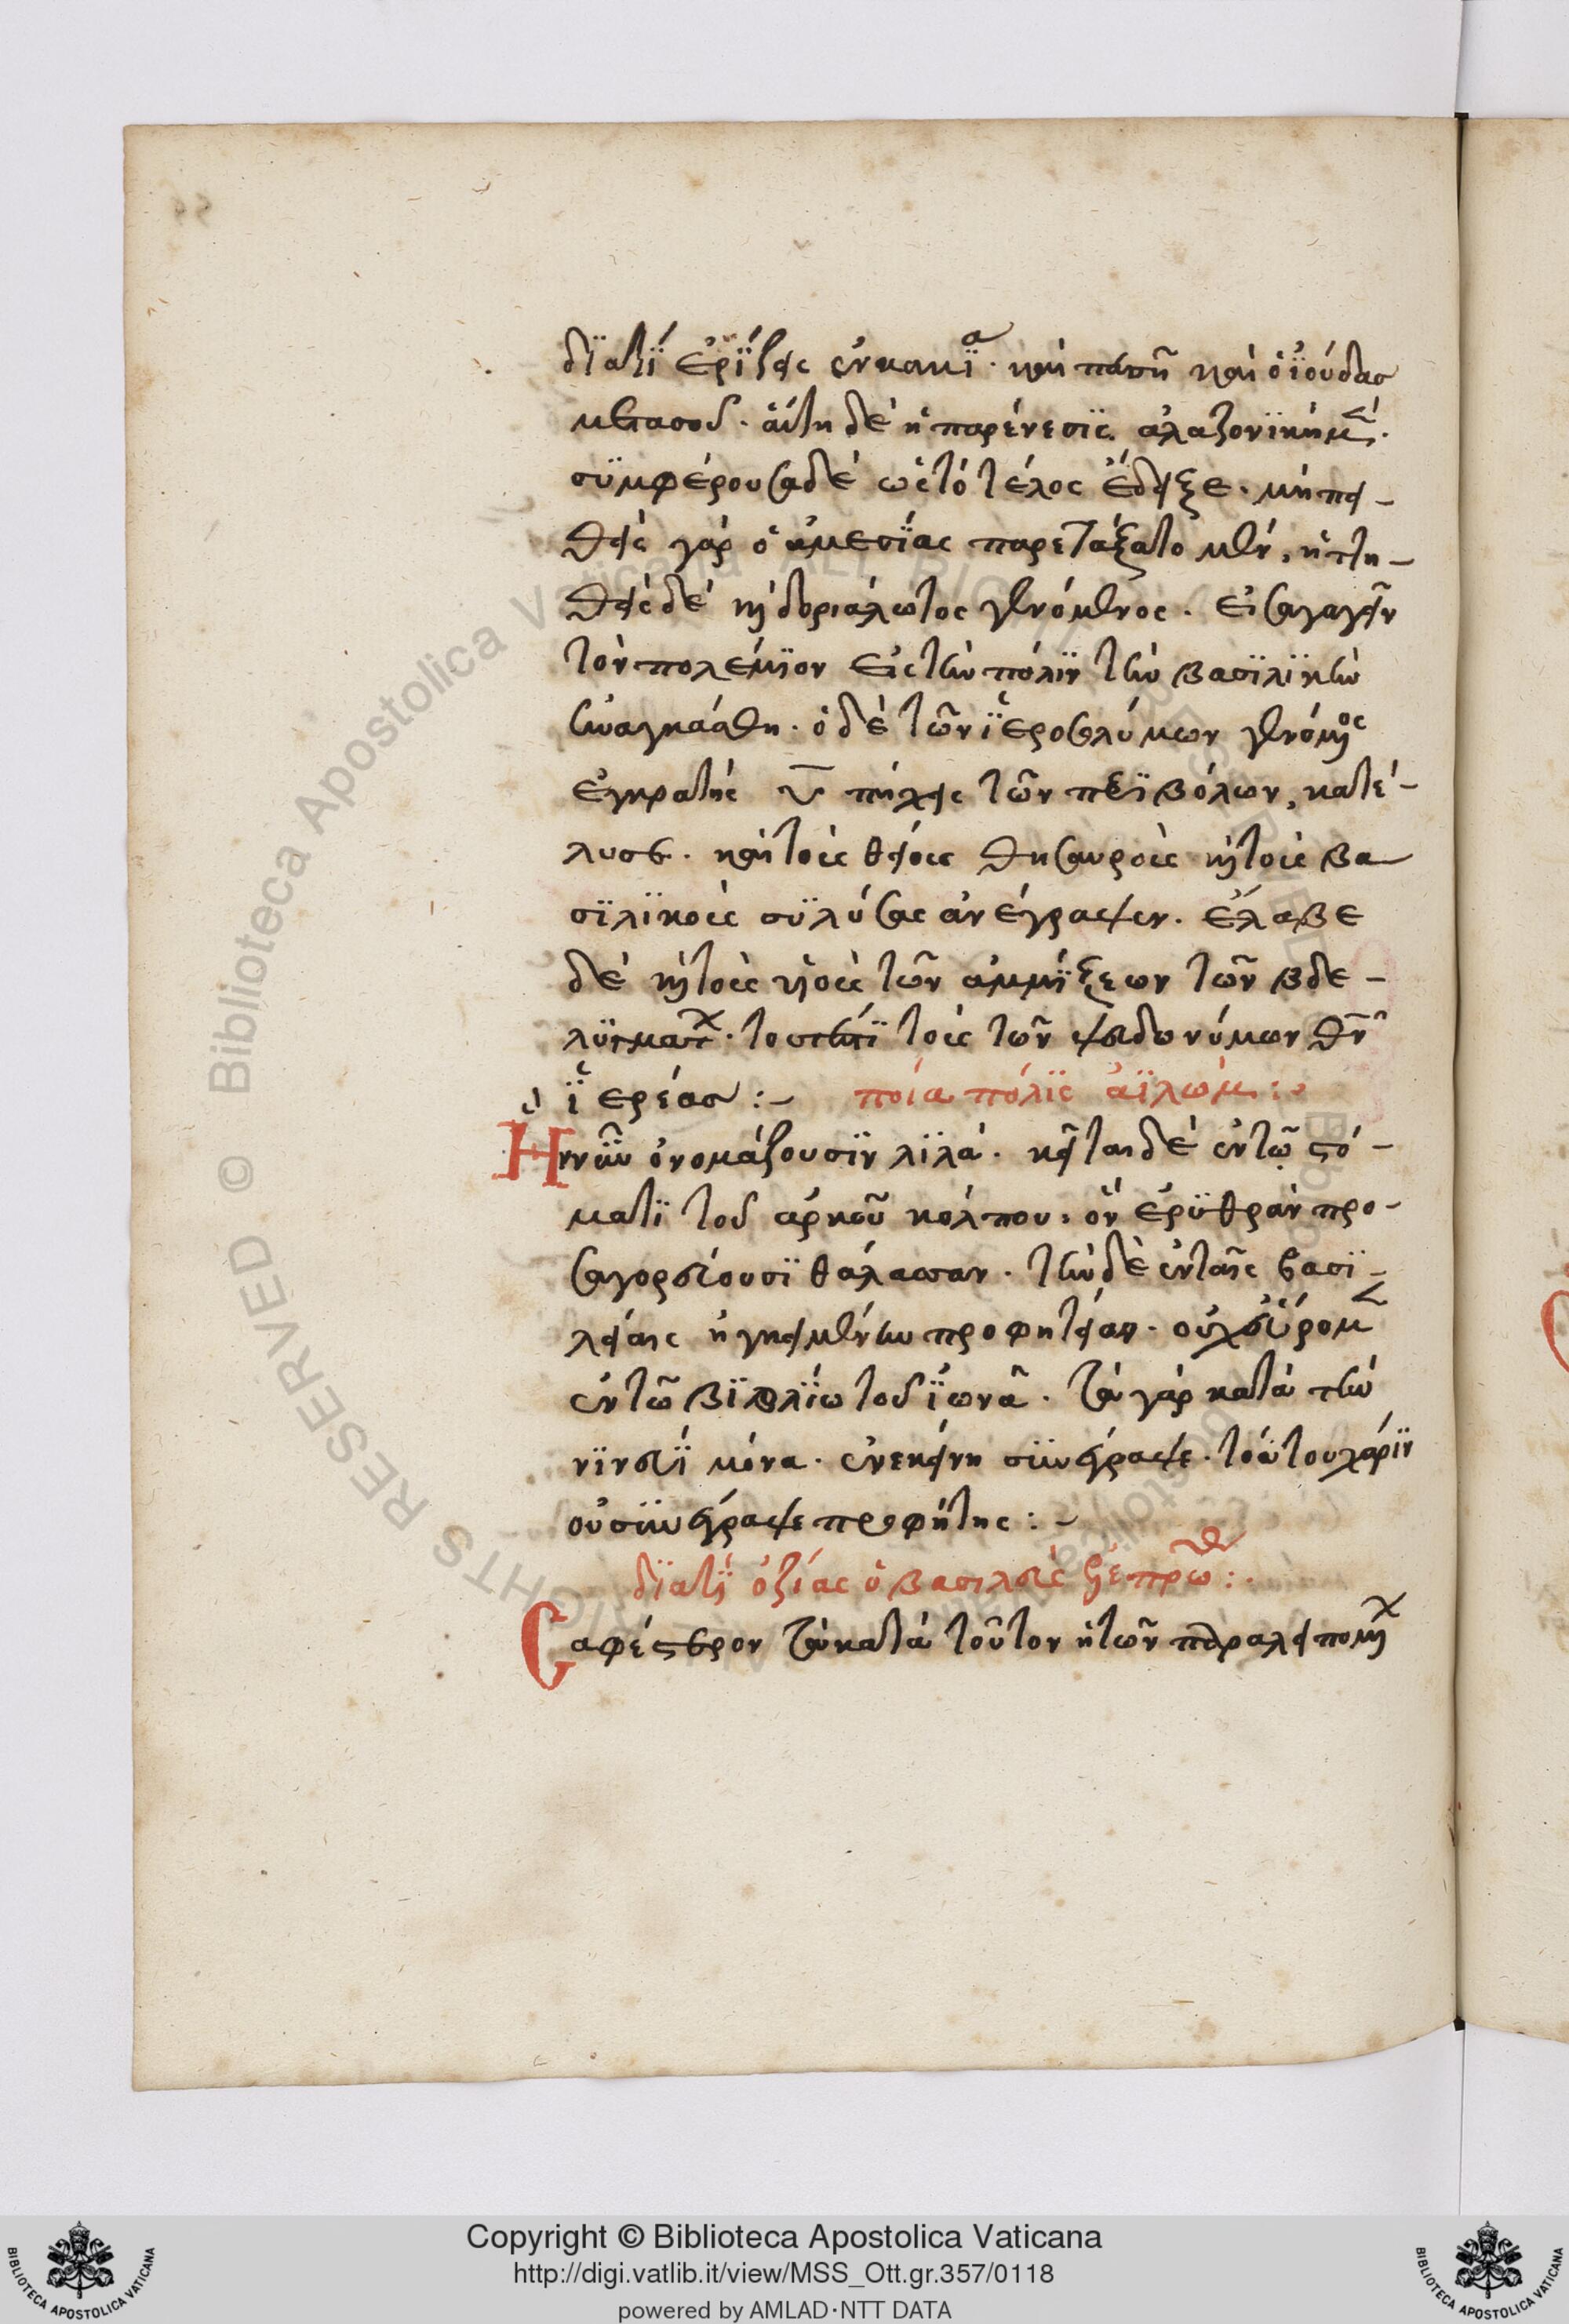 διατί ἐρίζεις ἐν κακία. καὶ πέση καὶ ὁ ἰούδας
μετὰ σοῦ. αὕτη δὲ ἡ παρένεσις ἀλαζονικὴ μὲν.
συμφέρουσα δὲ ὡς τὸ τέλος ἔδειξε. μὴ πει-
σθεὶς γὰρ ὁ ἀμεσίας παρετάξατο μὲν, ἡττη-
θεὶς δὲ κ δοριάλωτος γενόμενος. εἰσαγαγεῖν
τὸν πολέμιον εἰς τὴν πόλιν τὴν βασιλικὴν
ἠναγκάσθη. ὁ δὲ τῶν ἱεροσολύμων γενόμος
ἐγκρατὴς υ πήχεις τῶν περιβόλων, κατέ-
λυσε. καὶ τοὺς θείους θησαυροὺς κ τοὺς βα
σιλικοὺς συλύσας ἀνέγραψεν. ἔλαβε
δὲ κ τοὺς υἱοὺς τῶν ἀμμίξεων τῶν βδε-
λυγμάτ. τουτέστι τοὺς τῶν ψευδονύμων θν
ἱερέας :- ποία πόλις αἰλώμ :-
Ἣν νῦν ὀνομάζουσιν λιλά. κεῖται δὲ ἐν τῷ στό-
ματι τοῦ ἀρκοῦ κόλπου. ὃν ἐρυθρὰν προ-
σαγορεύουσι θάλασσαν. τὴν δὲ ἐν ταῖς βασι-
λείαις ἠγκειμένην προφητείαν. οὐχ εὕρομεν
ἐν τῷ βιβλίω τοῦ ἰωνᾶ. τὰ γὰρ κατὰ τὴν
νινευΐ μόνα. ἐνεκείνη συνέγραψε. τούτου χάριν
οὐ συνέγραψε προφήτης :-
διατί ὀζίας ὁ βασιλεὺς ἐλεπρώθ :-
Σαφέστερον τὰ κατὰ τοῦτον ἡ τῶν παραλειπομ